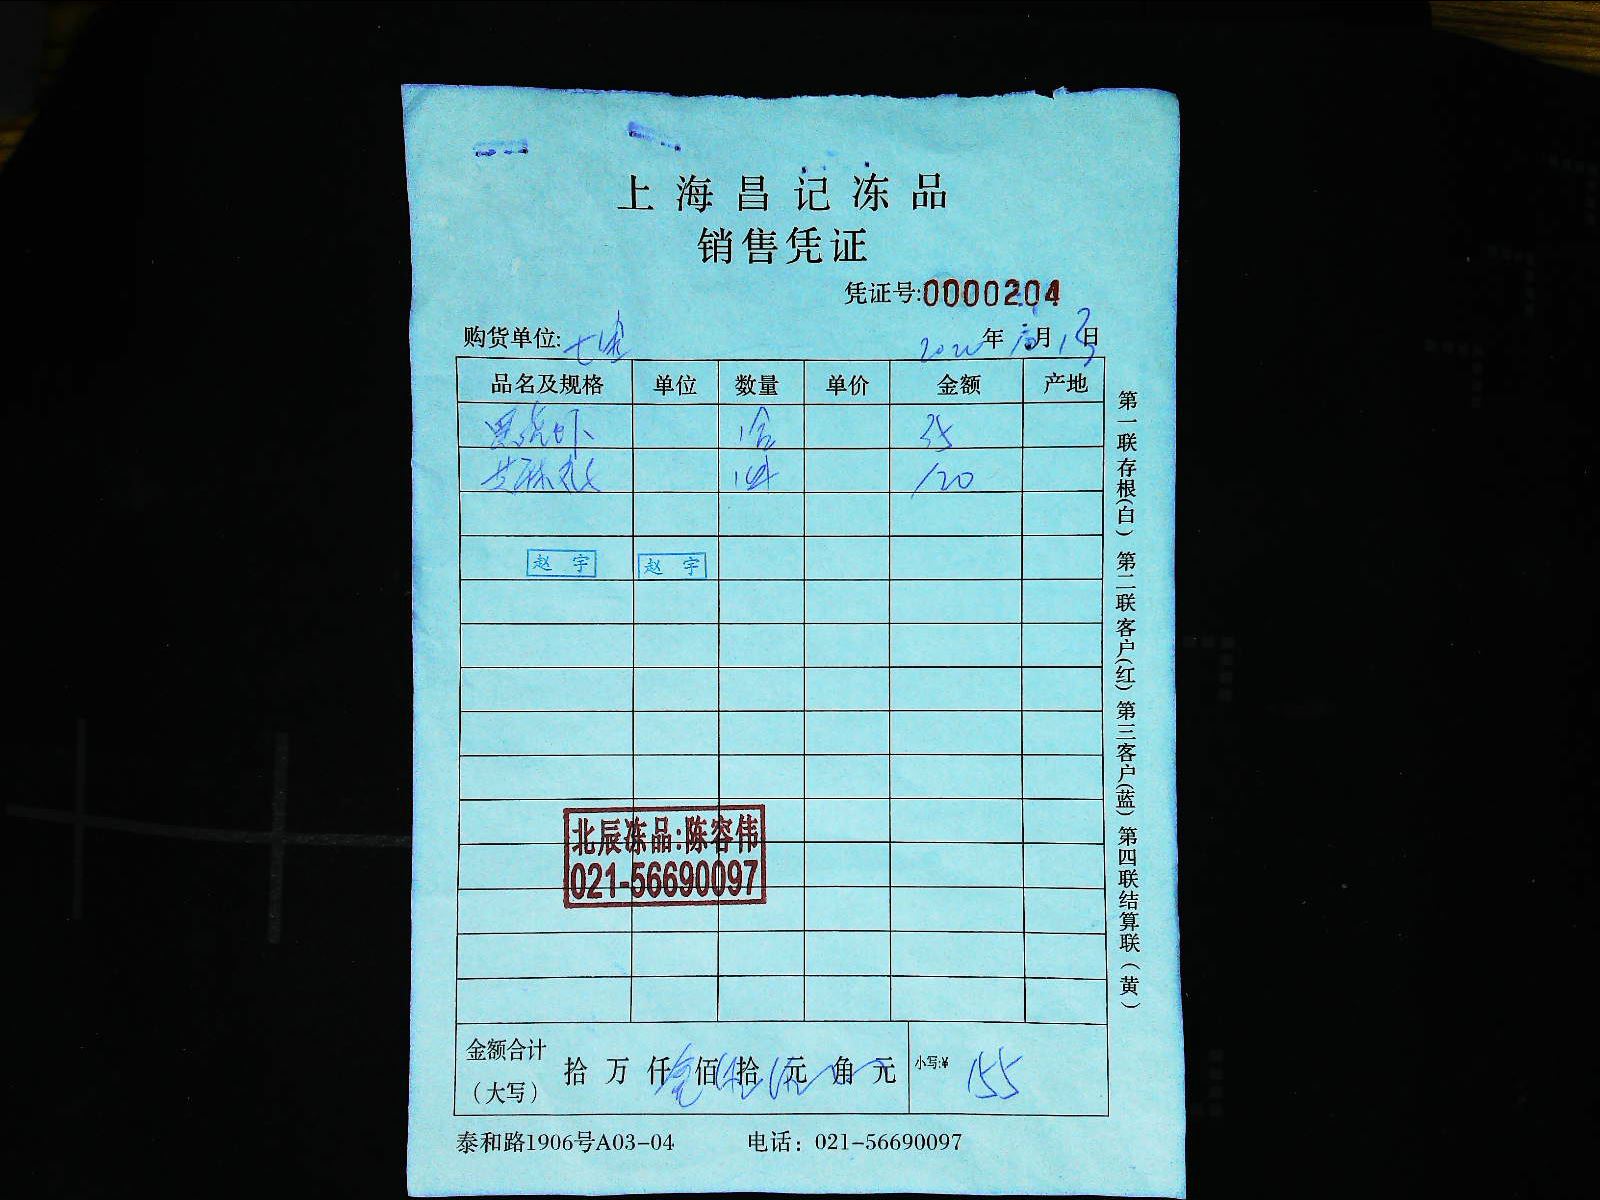 上海昌记冻品
销售凭证
凭证号:0000204
购货单位: 年 月 日
品名及规格 单位 数量 单价 金额 产地
黑虎虾 1合 35
芝麻丸 1件 120
赵宇 赵宇
北辰冻品:陈容伟
021-56690097
金额合计
(大写)
拾万仟壹佰伍拾伍元角元 小写:¥ 155
泰和路1906号A03-04 电话: 021-56690097
第一联存根(白) 第二联客户(红) 第三客户(蓝) 第四联结算联(黄)